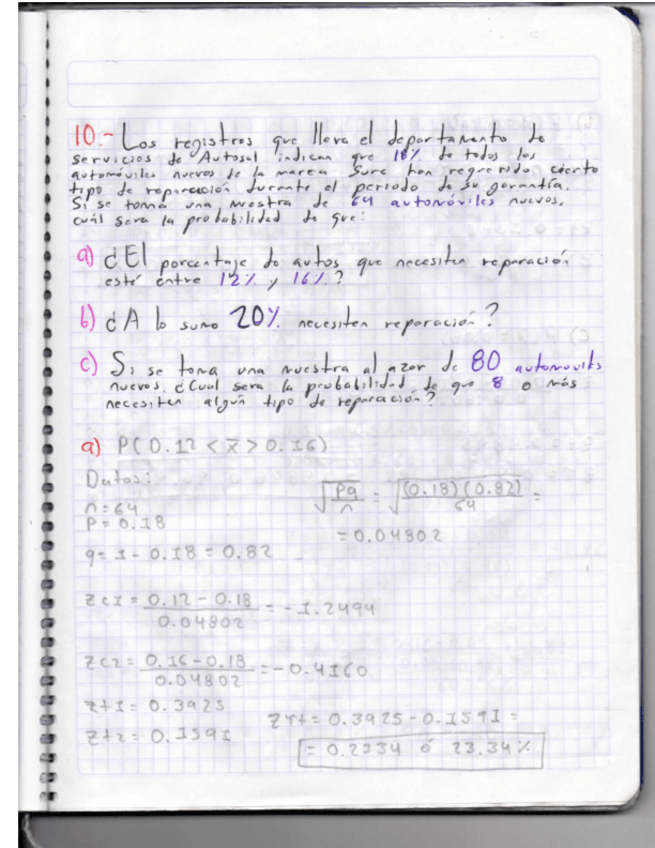 10.- Los registros que lleva el departamento de
servicios de Autosal indican que 18% de todos los
automóviles nuevos de la marca Sure han requerido cierto
tipo de reparación durante el periodo de su garantía.
Si se toma una muestra de 64 automóviles nuevos,
cuál sera la probabilidad de que:
a) ¿El porcentaje de autos que necesiten reparación
esté entre 12% y 16%?
b) ¿A lo sumo 20% necesiten reparación?
c) Si se toma una muestra al azar de 80 automovils
nuevos. ¿Cual sera la probabilidad de que 8 o más
necesiten algún tipo de reparación?
a) P(0.12 < x̄ > 0.16)
Datos:
n=64
P=0.18
q= 1-0.18 = 0.82
√Pq/n = √(0.18)(0.82)/64 =
= 0.04802
Zc1 = 0.12 - 0.18 / 0.04802 = -1.2494
Zc2 = 0.16 - 0.18 / 0.04802 = -0.4160
Zt1 = 0.3925
Zt2 = 0.1591
= 0.3925 - 0.1591 =
= 0.2334 ó 23.34%